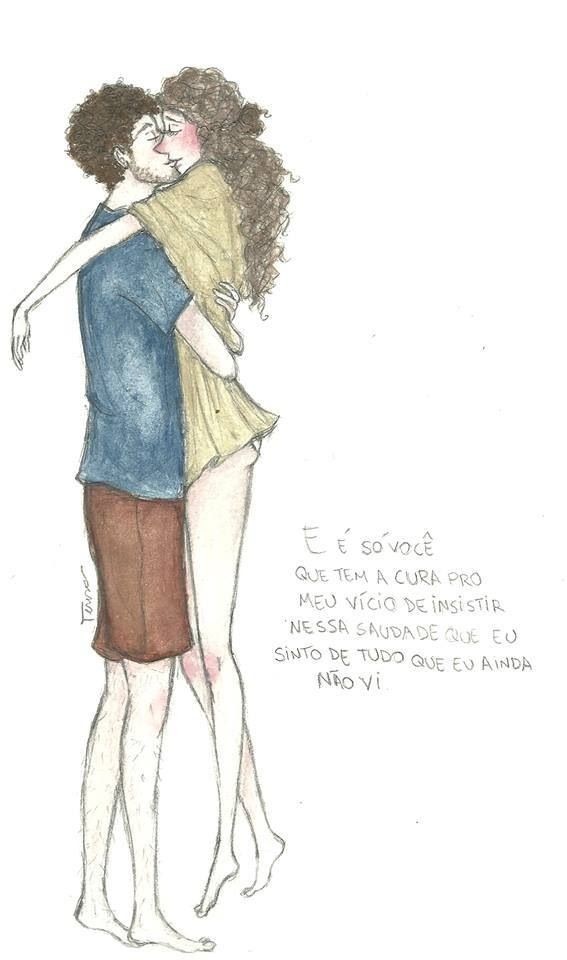 E É SÓ VOCÊ
QUE TEM A CURA PRO
MEU VÍCIO DE INSISTIR
NESSA SAUDADE QUE EU
SINTO DE TUDO QUE EU AINDA
NÃO VI